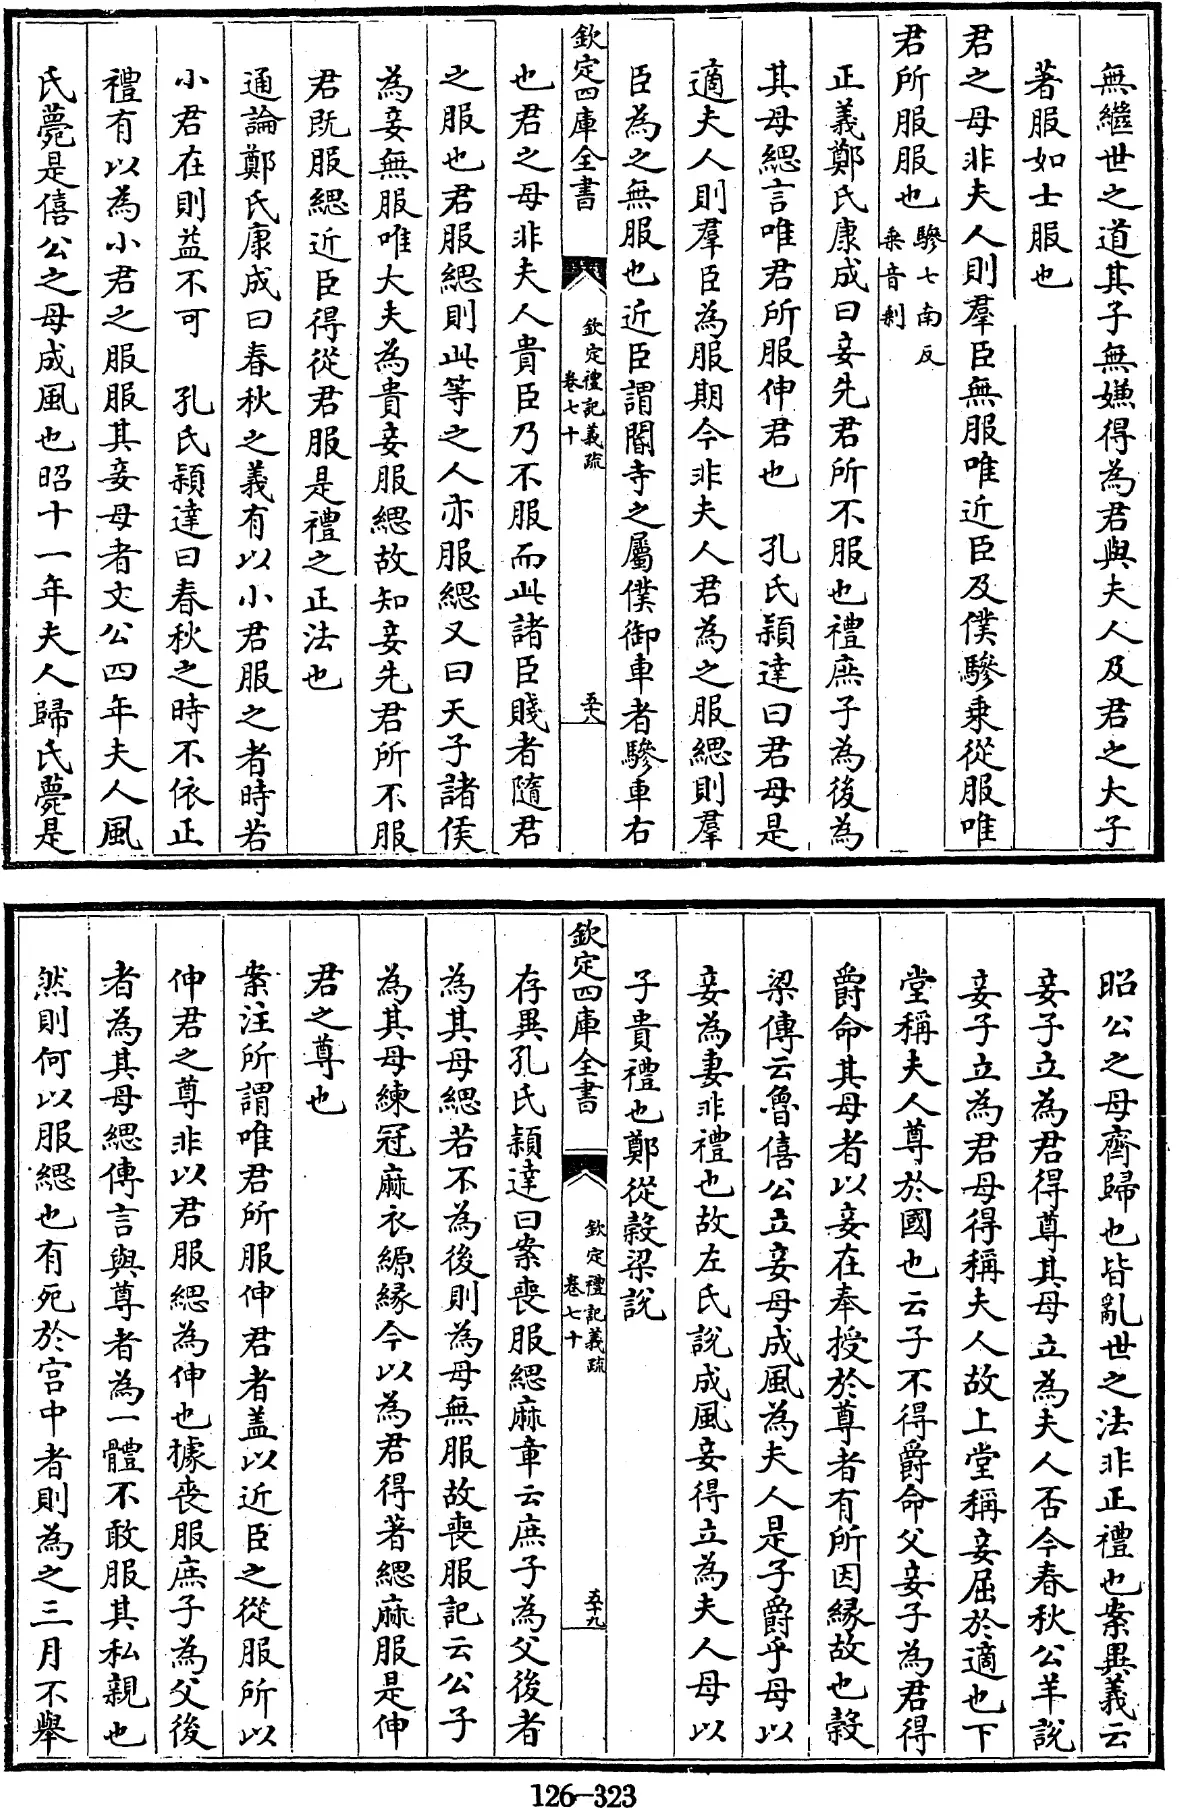 無繼世之道其子無嫌得為君與夫人及君之大子
著服如士服也
君之母非夫人則羣臣無服唯近臣及僕驂乗從服唯
君所服服也驂七南反
乗音剩
正義鄭氏康成曰妾先君所不服也禮庶子為後為
其母緦言唯君所服伸君也　孔氏穎達曰君母是
適夫人則羣臣為服期今非夫人君為之服緦則羣
臣為之無服也近臣謂閽寺之屬僕御車者驂車右
欽定四庫全書
欽定禮記義疏
卷七十
五十八
也君之母非夫人貴臣乃不服而此諸臣賤者隨君
之服也君服緦則此等之人亦服緦又曰天子諸侯
為妾無服唯大夫為貴妾服緦故知妾先君所不服
君既服緦近臣得從君服是禮之正法也
通論鄭氏康成曰春秋之義有以小君服之者時若
小君在則益不可　孔氏穎達曰春秋之時不依正
禮有以為小君之服服其妾母者文公四年夫人風
氏薨是僖公之母成風也昭十一年夫人歸氏薨是
昭公之母齊歸也皆亂世之法非正禮也案異義云
妾子立為君得尊其母立為夫人否今春秋公羊說
妾子立為君母得稱夫人故上堂稱妾屈於適也下
堂稱夫人尊於國也云子不得爵命父妾子為君得
爵命其母者以妾在奉授於尊者有所因緣故也穀
梁傳云魯僖公立妾母成風為夫人是子爵乎母以
妾為妻非禮也故左氏說成風妾得立為夫人母以
子貴禮也鄭從穀梁說
欽定四庫全書
欽定禮記義疏
卷七十
五十九
存異孔氏穎達曰案喪服緦麻章云庶子為父後者
為其母緦若不為後則為母無服故喪服記云公子
為其母練冠麻衣縓緣今以為君得著緦麻服是伸
君之尊也
案注所謂唯君所服伸君者盖以近臣之從服所以
伸君之尊非以君服緦為伸也據喪服庶子為父後
者為其母緦傳言與尊者為一體不敢服其私親也
然則何以服緦也有死於宫中者則為之三月不舉
126-323